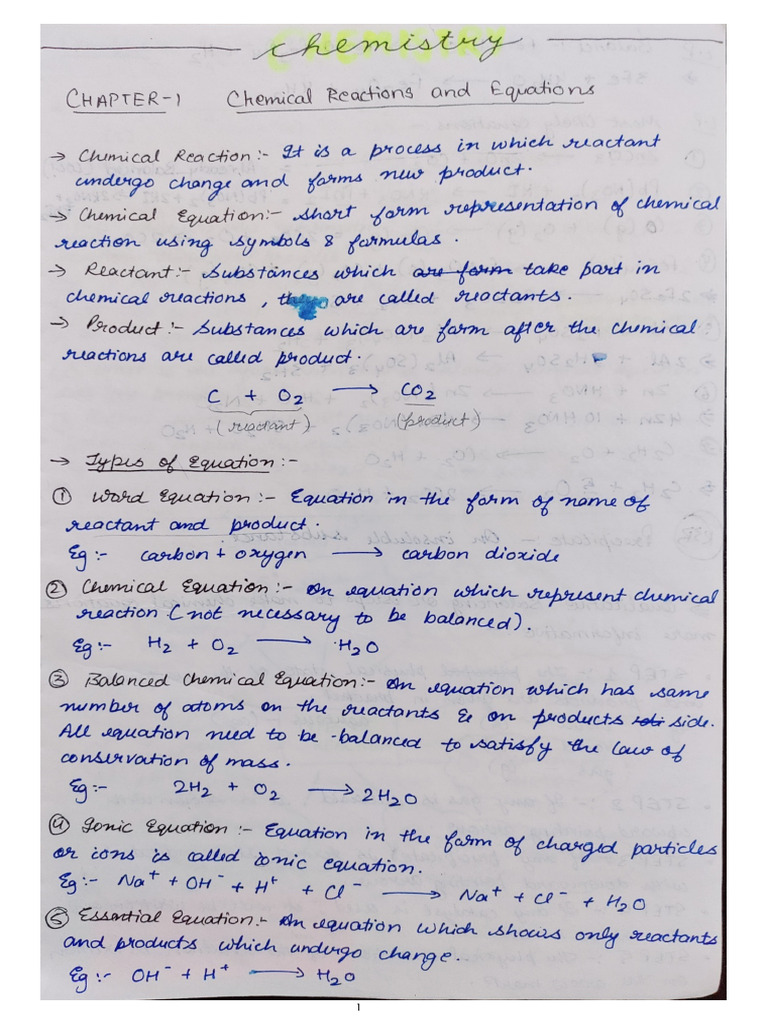 Chemistry
CHAPTER-1 Chemical Reactions and Equations
→ Chemical Reaction:- It is a process in which reactant
undergo change and forms new product.
→ Chemical Equation:- short form representation of chemical
reaction using symbols & formulas.
→ Reactant:- Substances which are form take part in
chemical reactions, are called reactants.
→ Product:- Substances which are form after the chemical
reactions are called product.
C + O₂ → CO₂
(reactant) (product)
→ Types of Equation:-
① Word Equation:- Equation in the form of name of
reactant and product.
Eg:- carbon + oxygen → carbon dioxide
② Chemical Equation:- An equation which represent chemical
reaction (not necessary to be balanced).
Eg:- H₂ + O₂ → H₂O
③ Balanced Chemical Equation:- An equation which has same
number of atoms on the reactants & on products side.
All equation need to be balanced to satisfy the law of
conservation of mass.
Eg:- 2H₂ + O₂ → 2H₂O
④ Ionic Equation:- Equation in the form of charged particles
or ions is called ionic equation.
Eg:- Na⁺ + OH⁻ + H⁺ + Cl⁻ → Na⁺ + Cl⁻ + H₂O
⑤ Essential Equation:- An equation which shows only reactants
and products which undergo change.
Eg:- OH⁻ + H⁺ → H₂O
1